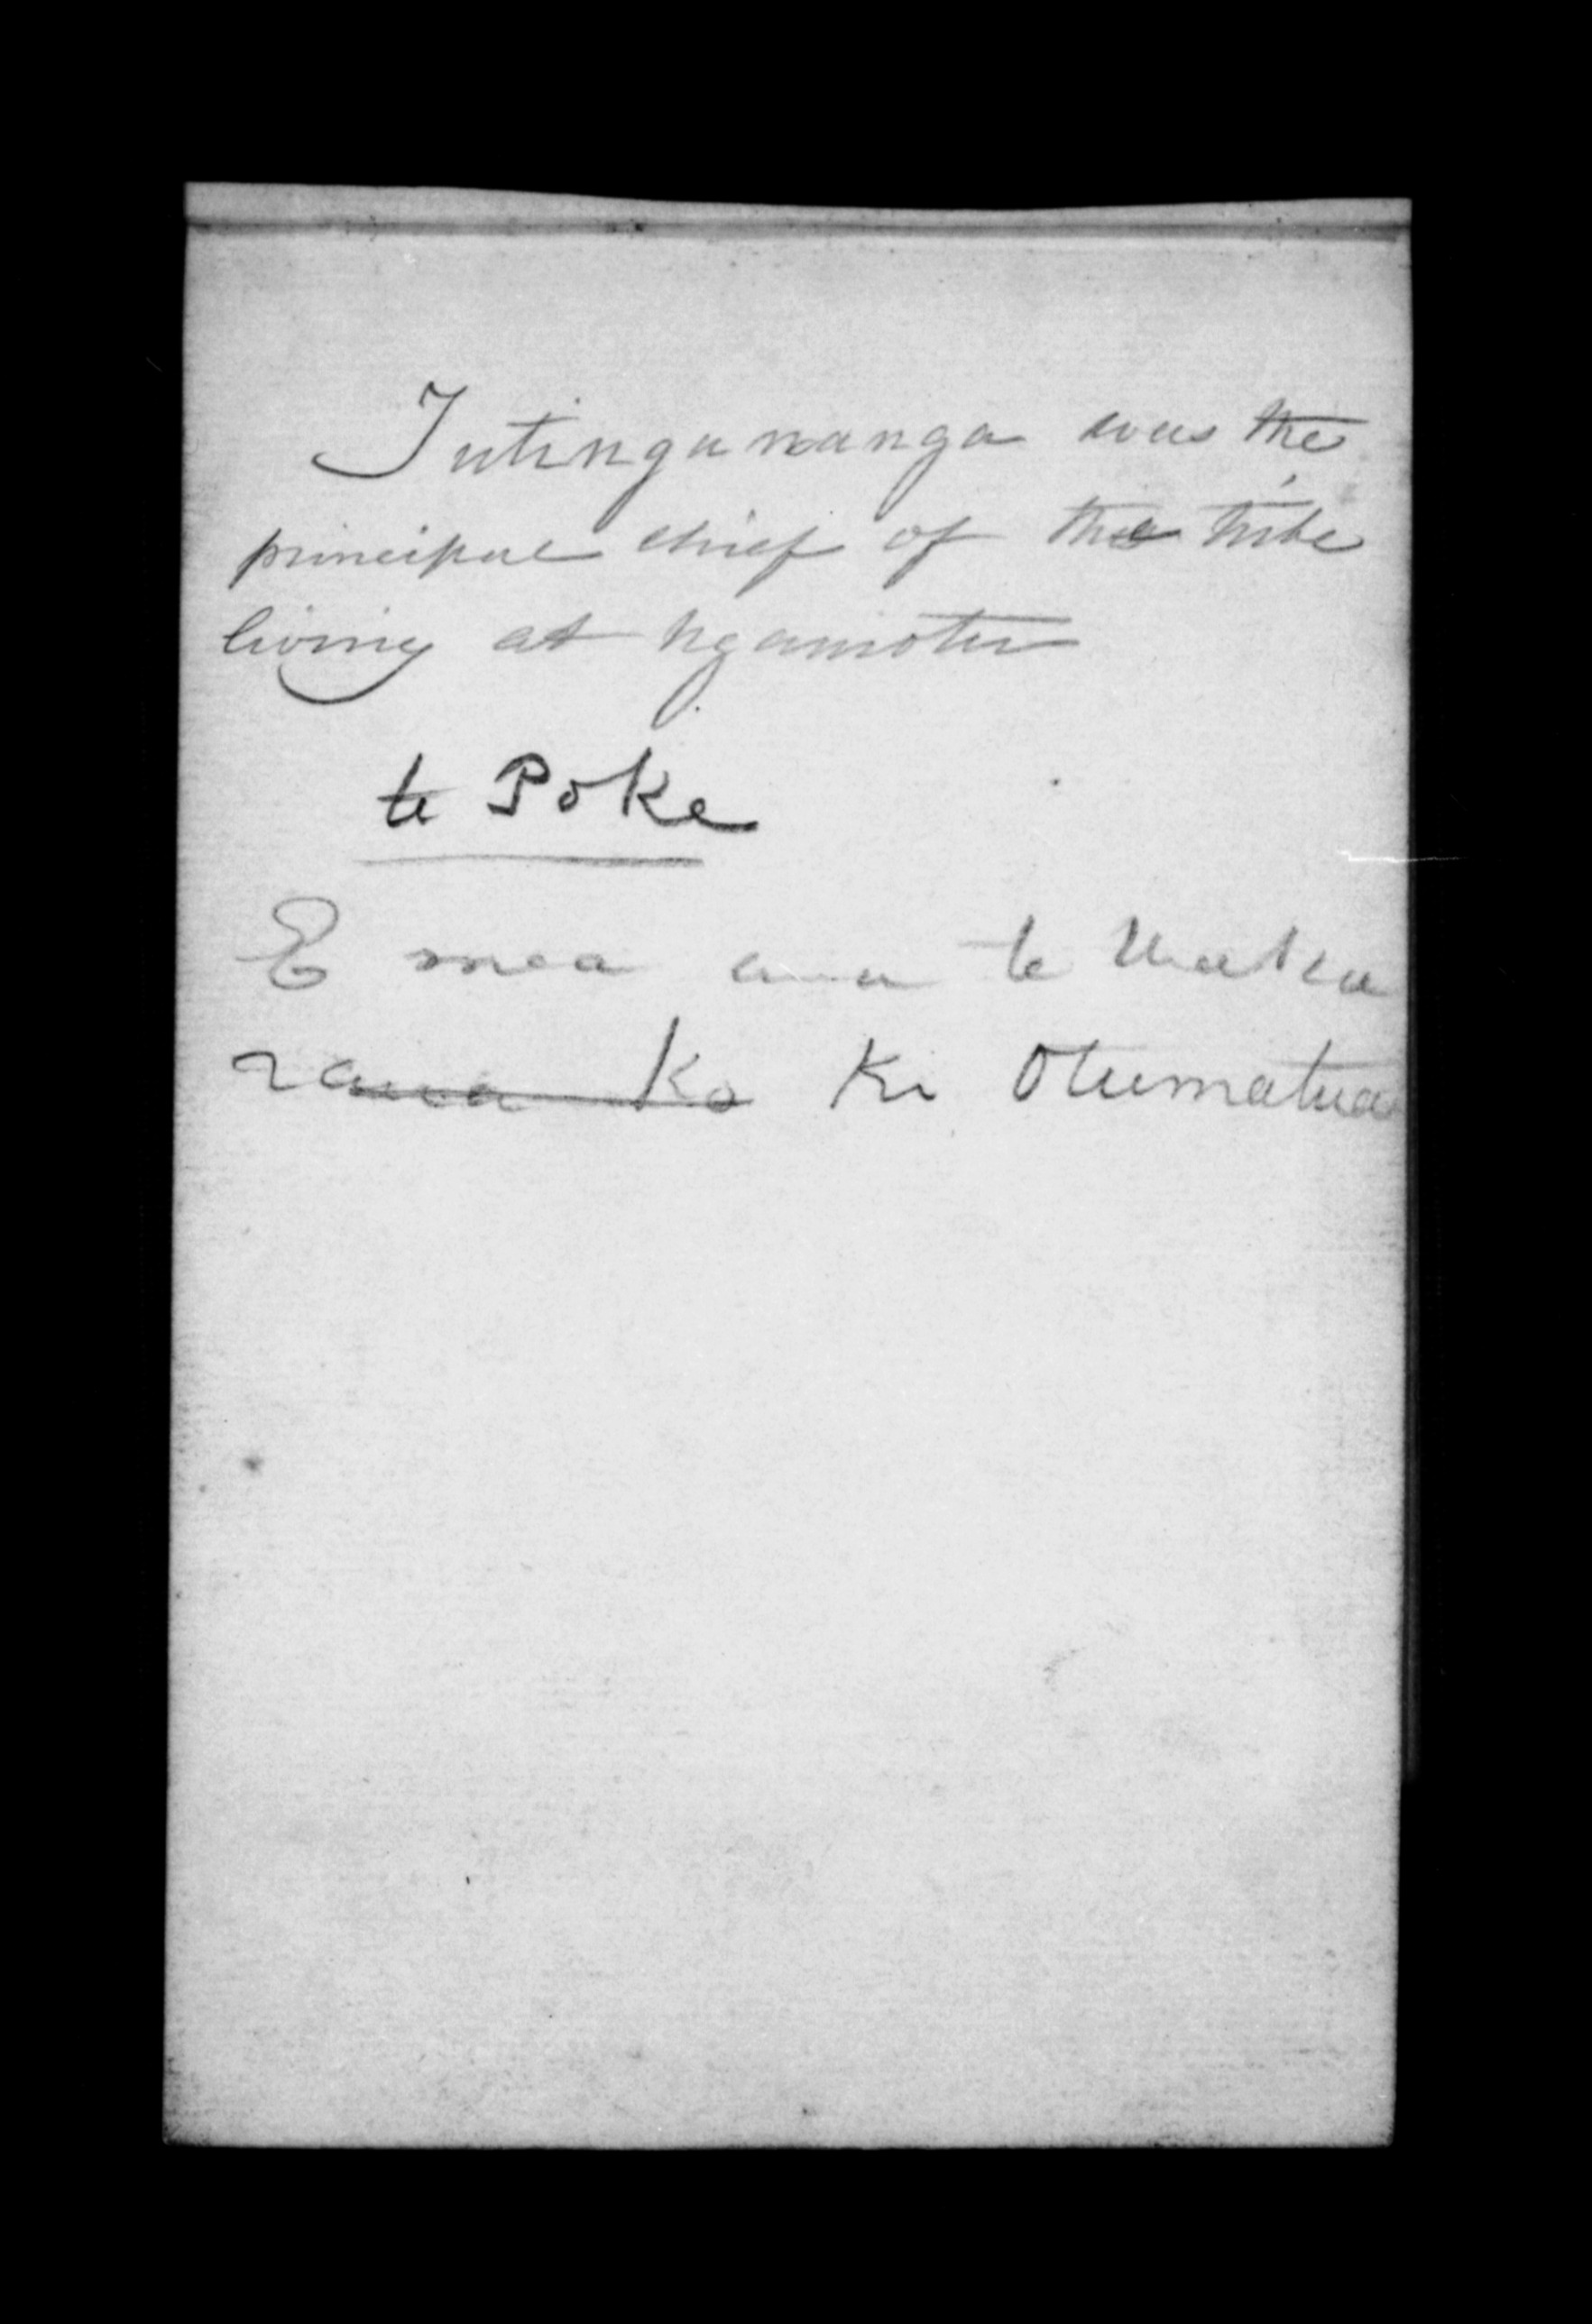 Tutinganganga was the
principal chief of the tribe
living at ngamotu
te Poke
E mea ana te
ko ki Otumatua